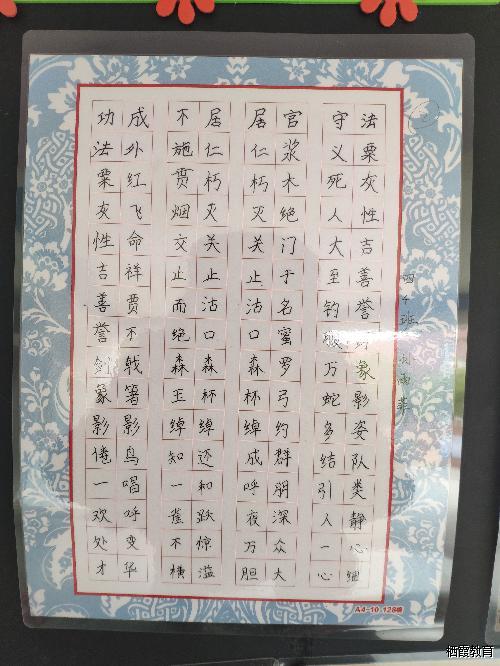 功成不居居官守法
法外施仁仁浆义粟
粟红贾朽朽木死灰
灰飞烟灭灭绝人性
性命交关关门大吉
吉祥止止止于至善
善贾而沽沽名钓誉
誉不绝口口蜜腹剑
剑戟森森森罗万象
象箸王杯杯弓蛇影
影影绰绰绰约多姿
倦鸟知还成群结队
一唱一和呼朋引类
欢呼雀跃夜深人静
处变不惊万众一心
才华横溢胆大心细
四4班
雨菲
A4-10 128格
栖霞教育